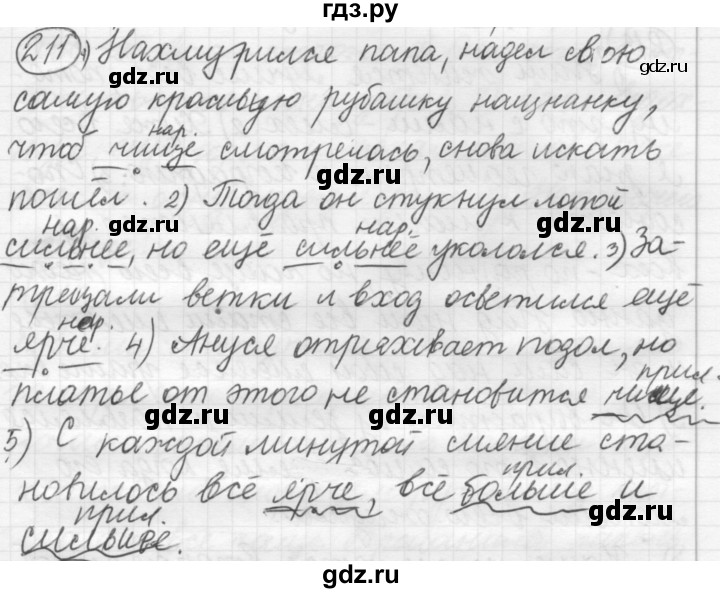 гдз.ру
211 1) Нахмурился папа, надел свою
gdz.ru gdz.ru
самую красивую рубашку нащнанку,
нар.
чтоб чище смотрелась, снова искать
пошёл. 2) Тогда он стукнул лапой
нар. gdz.ru нар. gdz.ru
сильнее, но ещё сильнее укололся. 3) За-
трещали ветки и вход осветился ещё
нар. gdz.ru gdz.ru
ярче. 4) Ануся отряхивает подол, но
прил.
платье от этого не становится чище.
gdz.ru gdz.ru
5) С каждой минутой сияние ста-
прил.
новилось всё ярче, всё больше и
прил. gdz.ru gdz.ru
сильнее.
gdz.ru